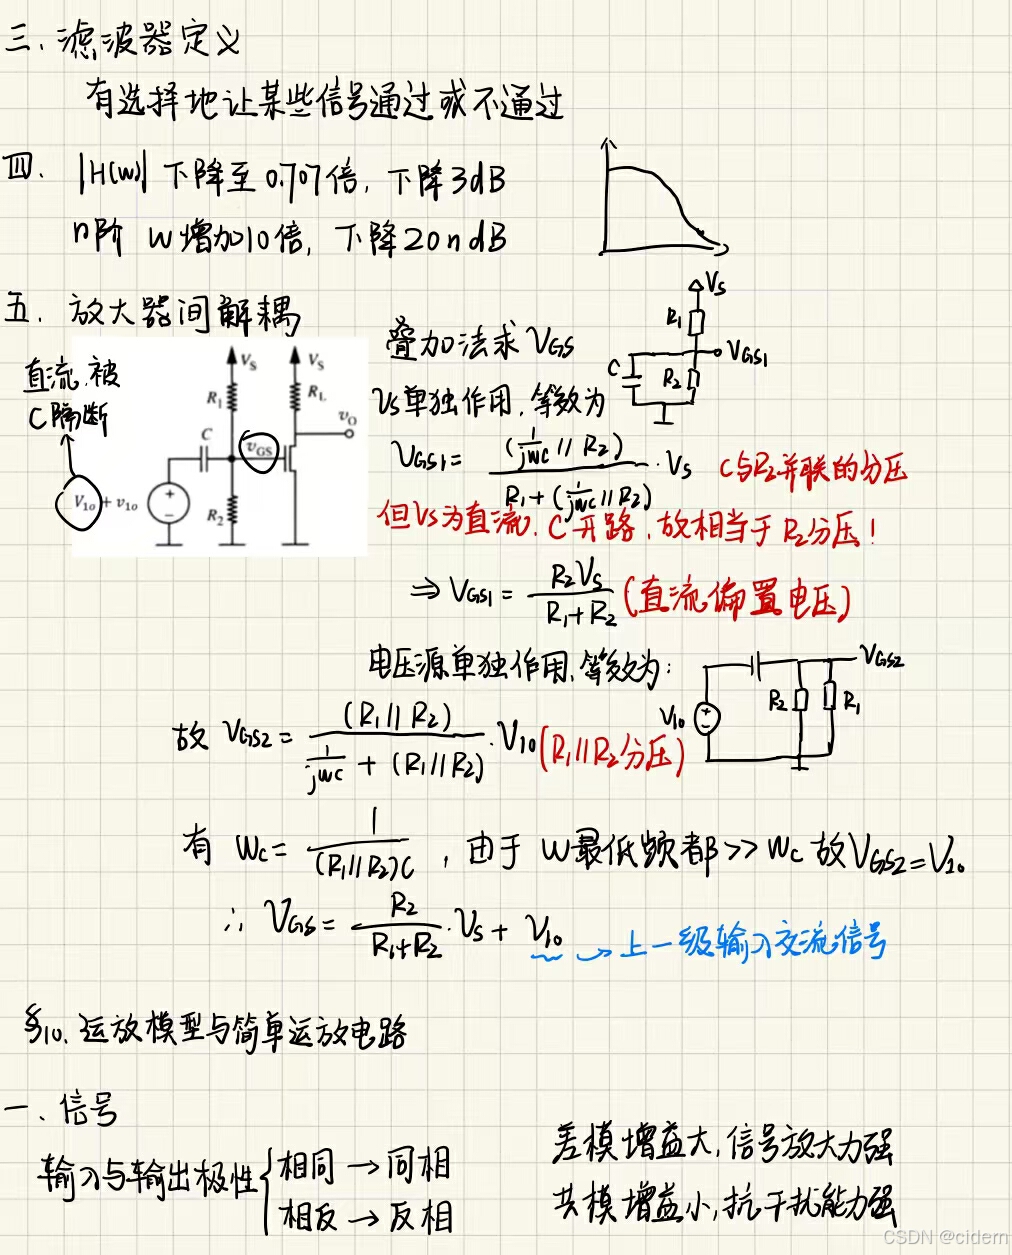 三. 滤波器定义
有选择地让某些信号通过或不通过
四. |H(w)| 下降至0.707倍, 下降3dB
n阶 w增加10倍, 下降20ndB
五. 放大器间解耦
直流.被
C隔断
V_S
V_S
R_1
R_L
v_O
C
v_GS
V_1o + v_1o
R_2
叠加法求 V_GS
V_S
R_1
V_GS1
C
R_2
V_S单独作用, 等效为
V_GS1 = (1/jwC // R_2) / (R_1 + (1/jwC // R_2)) · V_S C与R_2并联的分压
但V_S为直流, C开路, 故相当于R_2分压!
⇒ V_GS1 = R_2V_S / (R_1+R_2) (直流偏置电压)
电压源单独作用, 等效为:
V_GS2
V_10
R_2
R_1
故 V_GS2 = (R_1//R_2) / (1/jwC + (R_1//R_2)) · V_10 (R_1//R_2分压)
有 W_C = 1 / (R_1//R_2)C , 由于 w最低频都>>W_C 故V_GS2=V_10
∴ V_GS = R_2 / (R_1+R_2) · V_S + V_10 → 上一级输入交流信号
§10. 运放模型与简单运放电路
一. 信号
输入与输出极性 { 相同 → 同相
相反 → 反相
差模增益大, 信号放大力强
共模增益小, 抗干扰能力强
CSDN @cidern